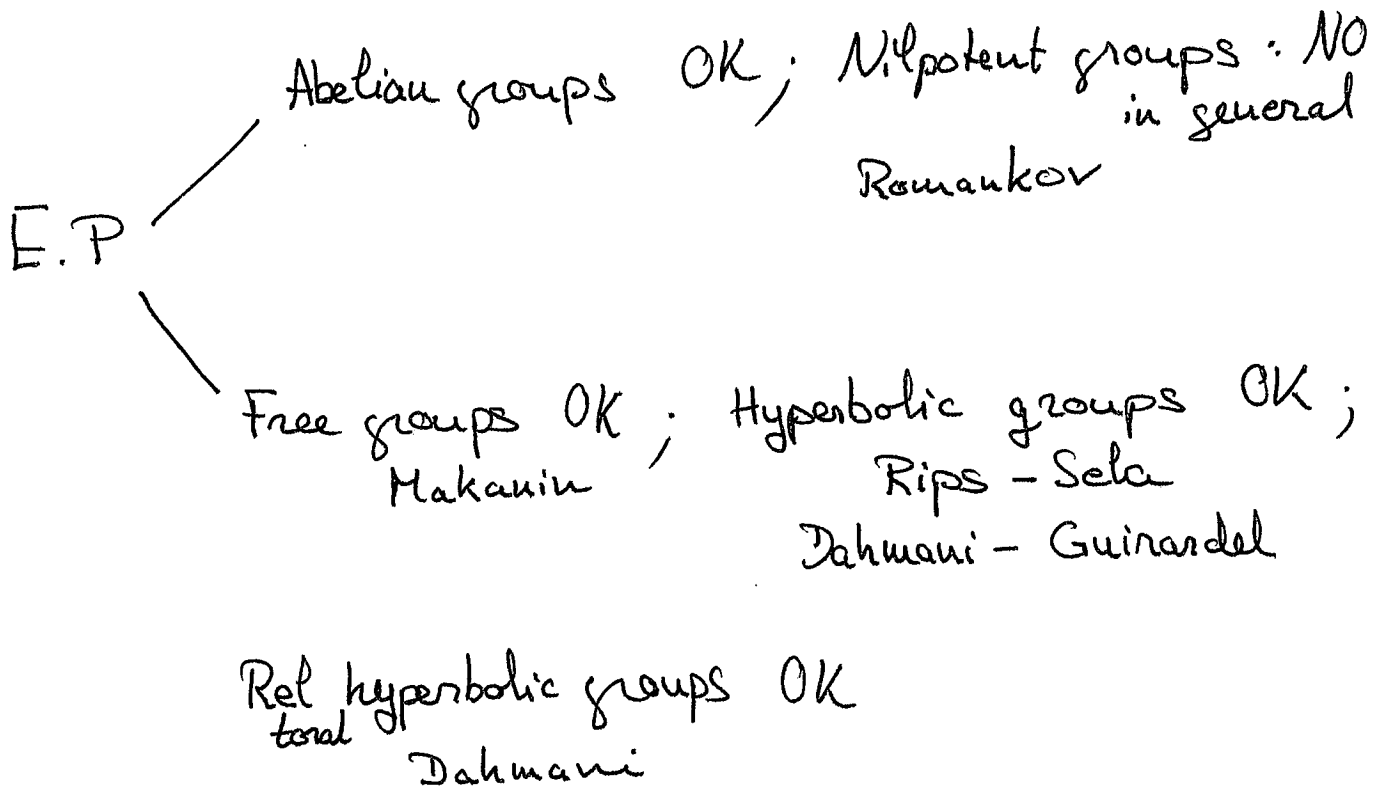 Abelian groups OK ; Nilpotent groups : NO
in general
Romankov
E.P
Free groups OK ; Hyperbolic groups OK ;
Makanin Rips - Sela
Dahmani - Guirardel
Rel hyperbolic groups OK
toral
Dahmani